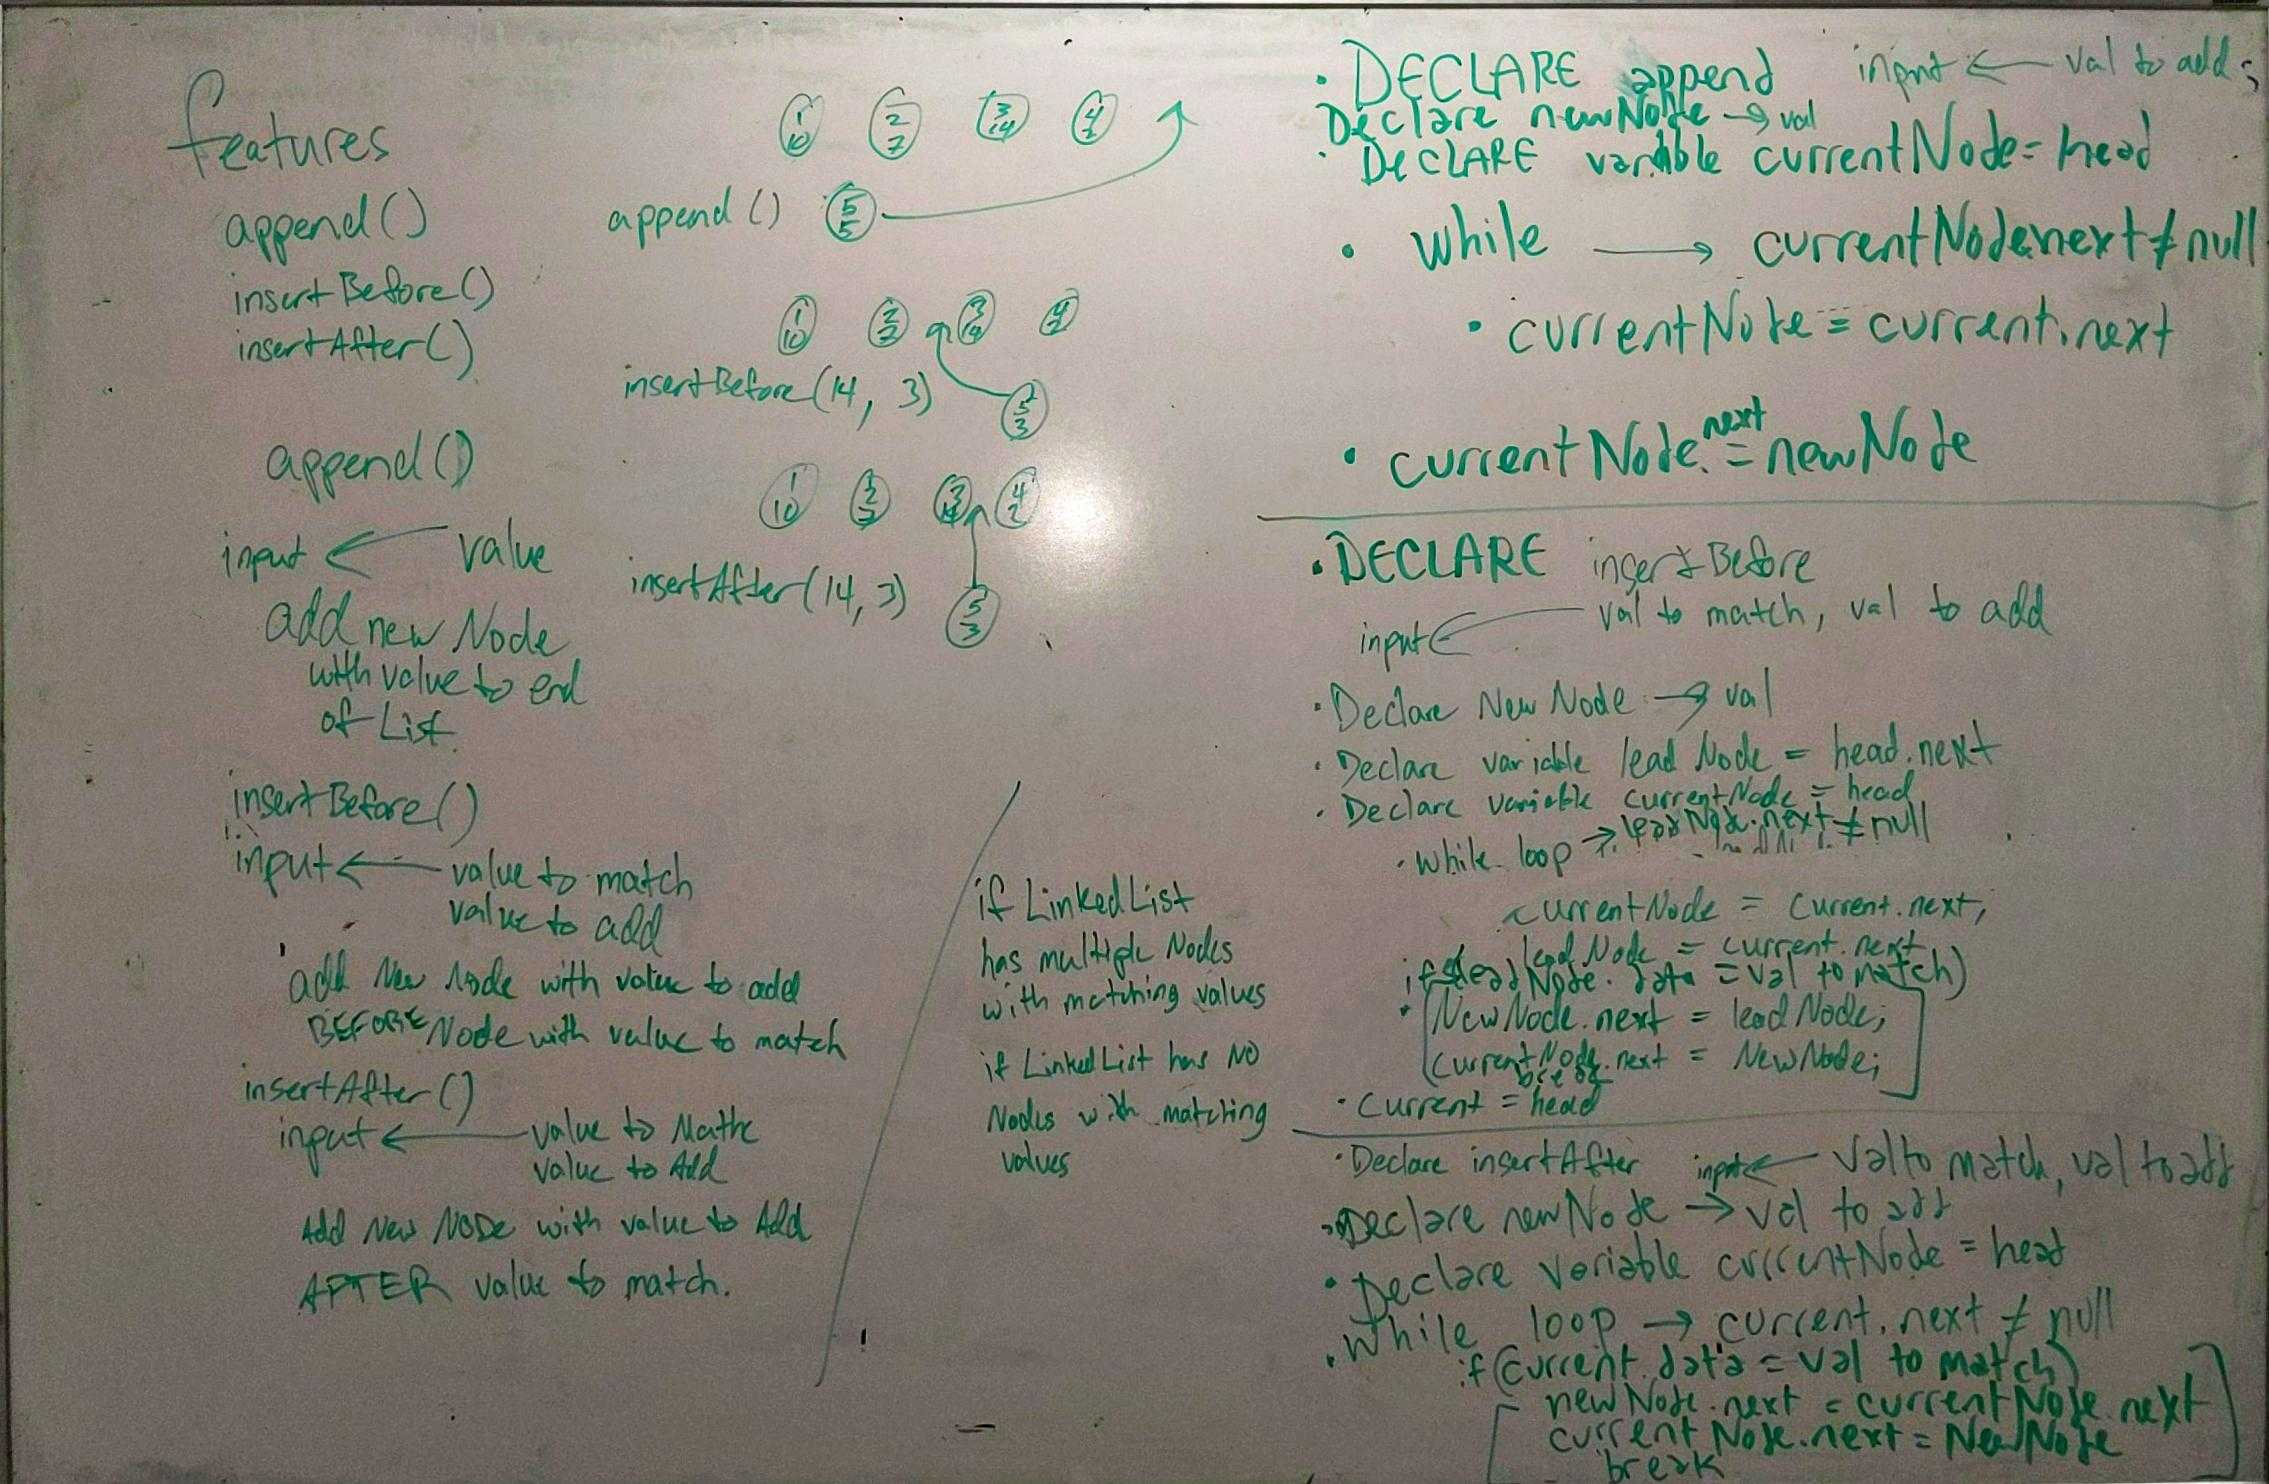 features
append()
insertBefore()
insertAfter()
append()
input ← value
add new Node
with value to end
of List.
insertBefore()
input ← value to match
value to add
add New Node with value to add
BEFORE Node with value to match
insertAfter()
input ← value to Mathc
value to Add
Add New NODE with value to Add
AFTER value to match.
1 2 3 4
10 7 14 2
append() 5
5
1 2 3 4
10 7 14 2
insertBefore(14, 3) 5
3
1 2 3 4
10 7 14 2
insertAfter(14, 3) 5
3
if LinkedList
has multiple Nodes
with matching values
if LinkedList has NO
Nodes with matching
values
• DECLARE append input ← val to add;
Declare newNode → val
• DECLARE variable currentNode = head
• while → currentNode.next ≠ null
• currentNode = current.next
• currentNode.next = newNode
• DECLARE insertBefore
input ← val to match, val to add
• Declare New Node → val
• Declare variable lead Node = head.next
• Declare variable currentNode = head
• while loop → leadNode.next ≠ null
currentNode = current.next;
lead Node = current.next
if (leadNode.data = val to match)
• NewNode.next = leadNode;
currentNode.next = NewNode;
break
• current = head
• Declare insertAfter input ← val to match, val to add
• Declare newNode → val to add
• Declare variable currentNode = head
• while loop → current.next ≠ null
if (current.data = val to match)
newNode.next = currentNode.next
currentNode.next = NewNode
break